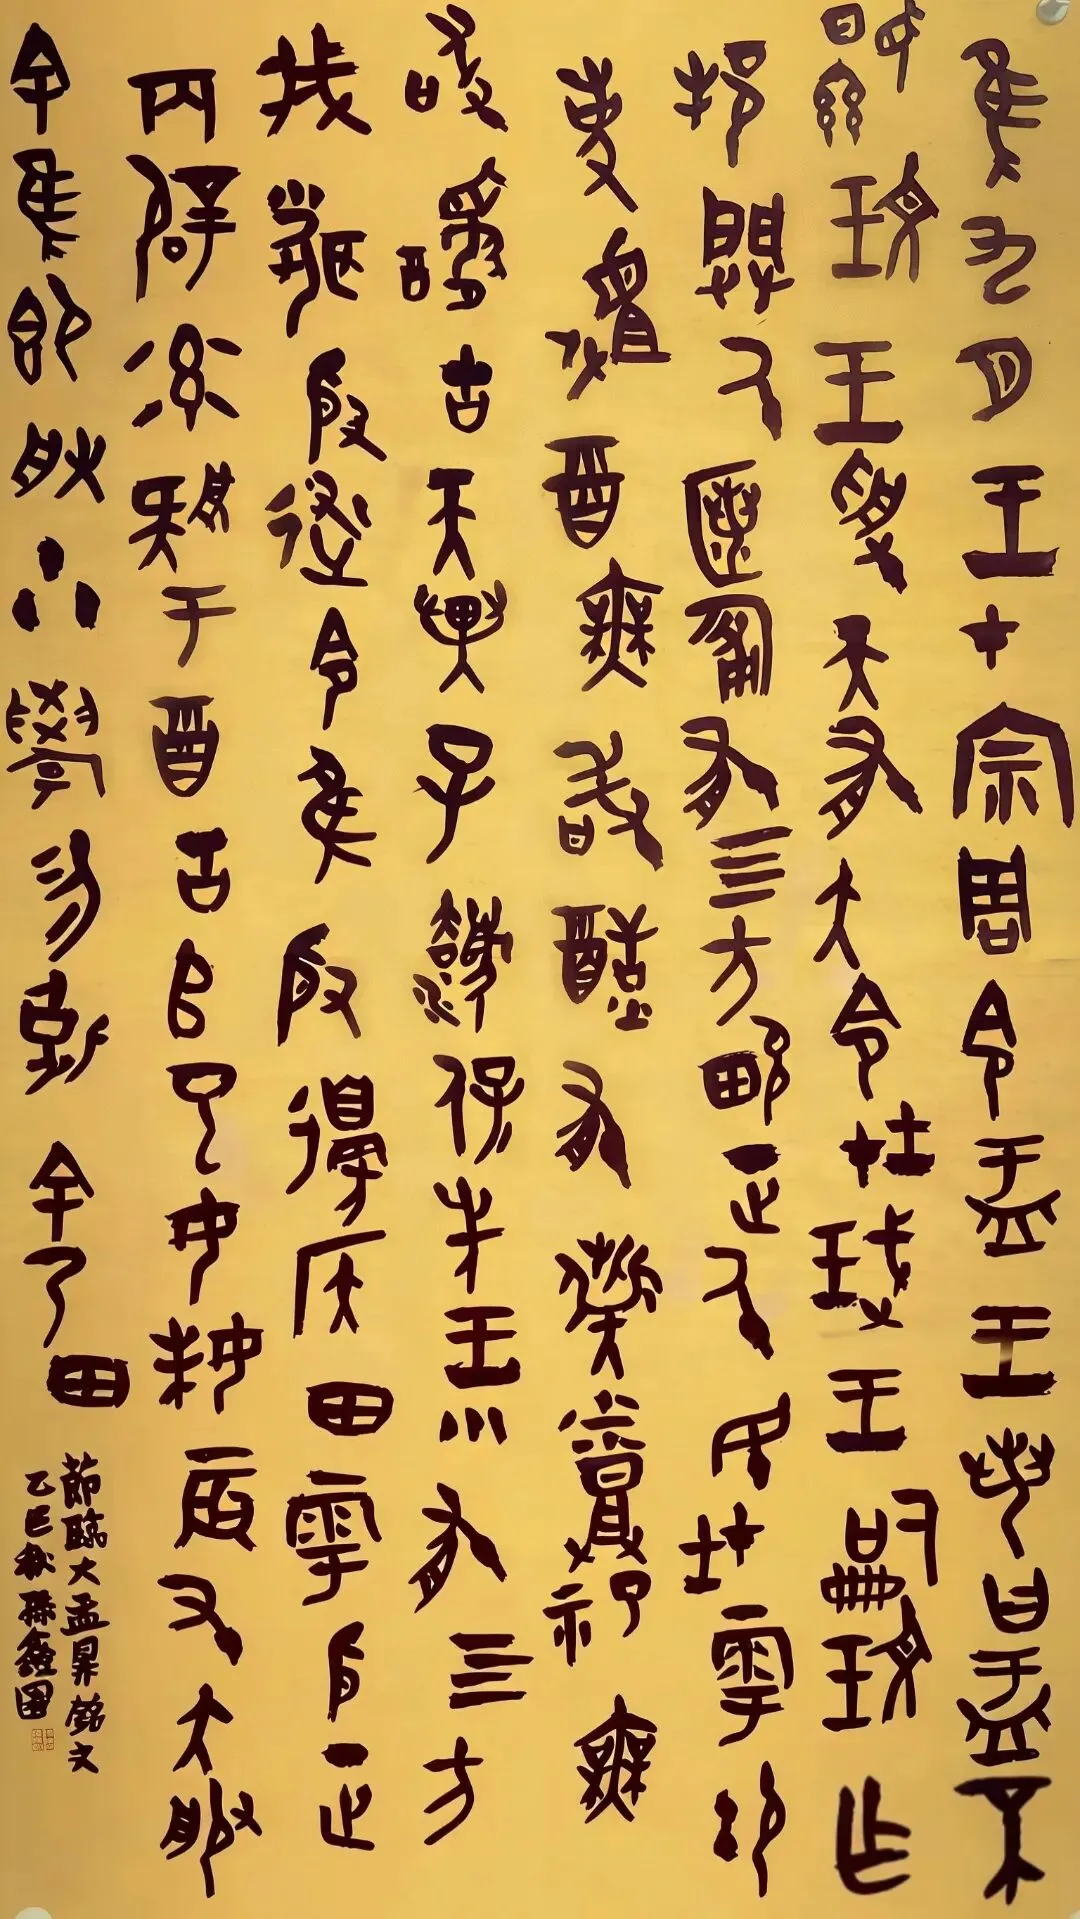 隹九月王才宗周令盂王若曰盂不
顯玟王受天有大令在珷王嗣玟乍
邦闢厥匿匍有四方畯正厥民在雩御
事䖒酒無敢酖有髭烝祀無
敢醻古天異子灋保先王有四方
我聞殷述令隹殷邊侯田雩殷正
百辟率肄于酒古𠂤巳女妹辰又大服
余隹即朕小學勿剋余乃
節臨大盂鼎銘文
乙巳秋孫